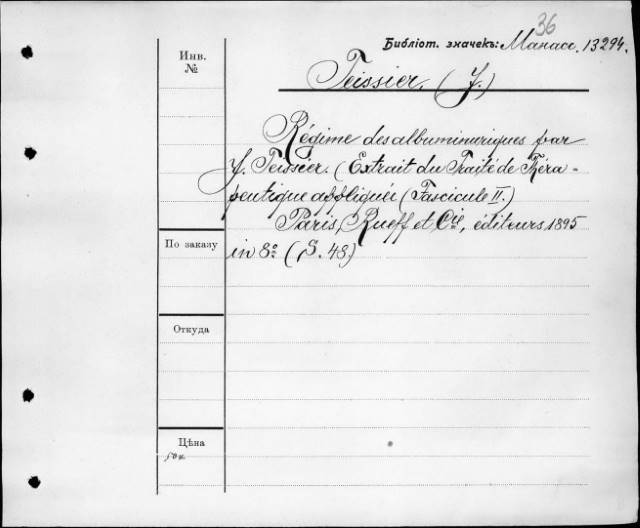 36
Библіот. значекъ: Манасс. 13294.
Инв.
№
Teissier. (J.)
Régime des albuminuriques par
J. Teissier. (Extrait du Traité de Théra-
peutique appliquée (Fascicule II.)
Paris, Rueff et Cie, éditeurs 1895
По заказу
in 8° (S. 48)
Откуда
Цѣна